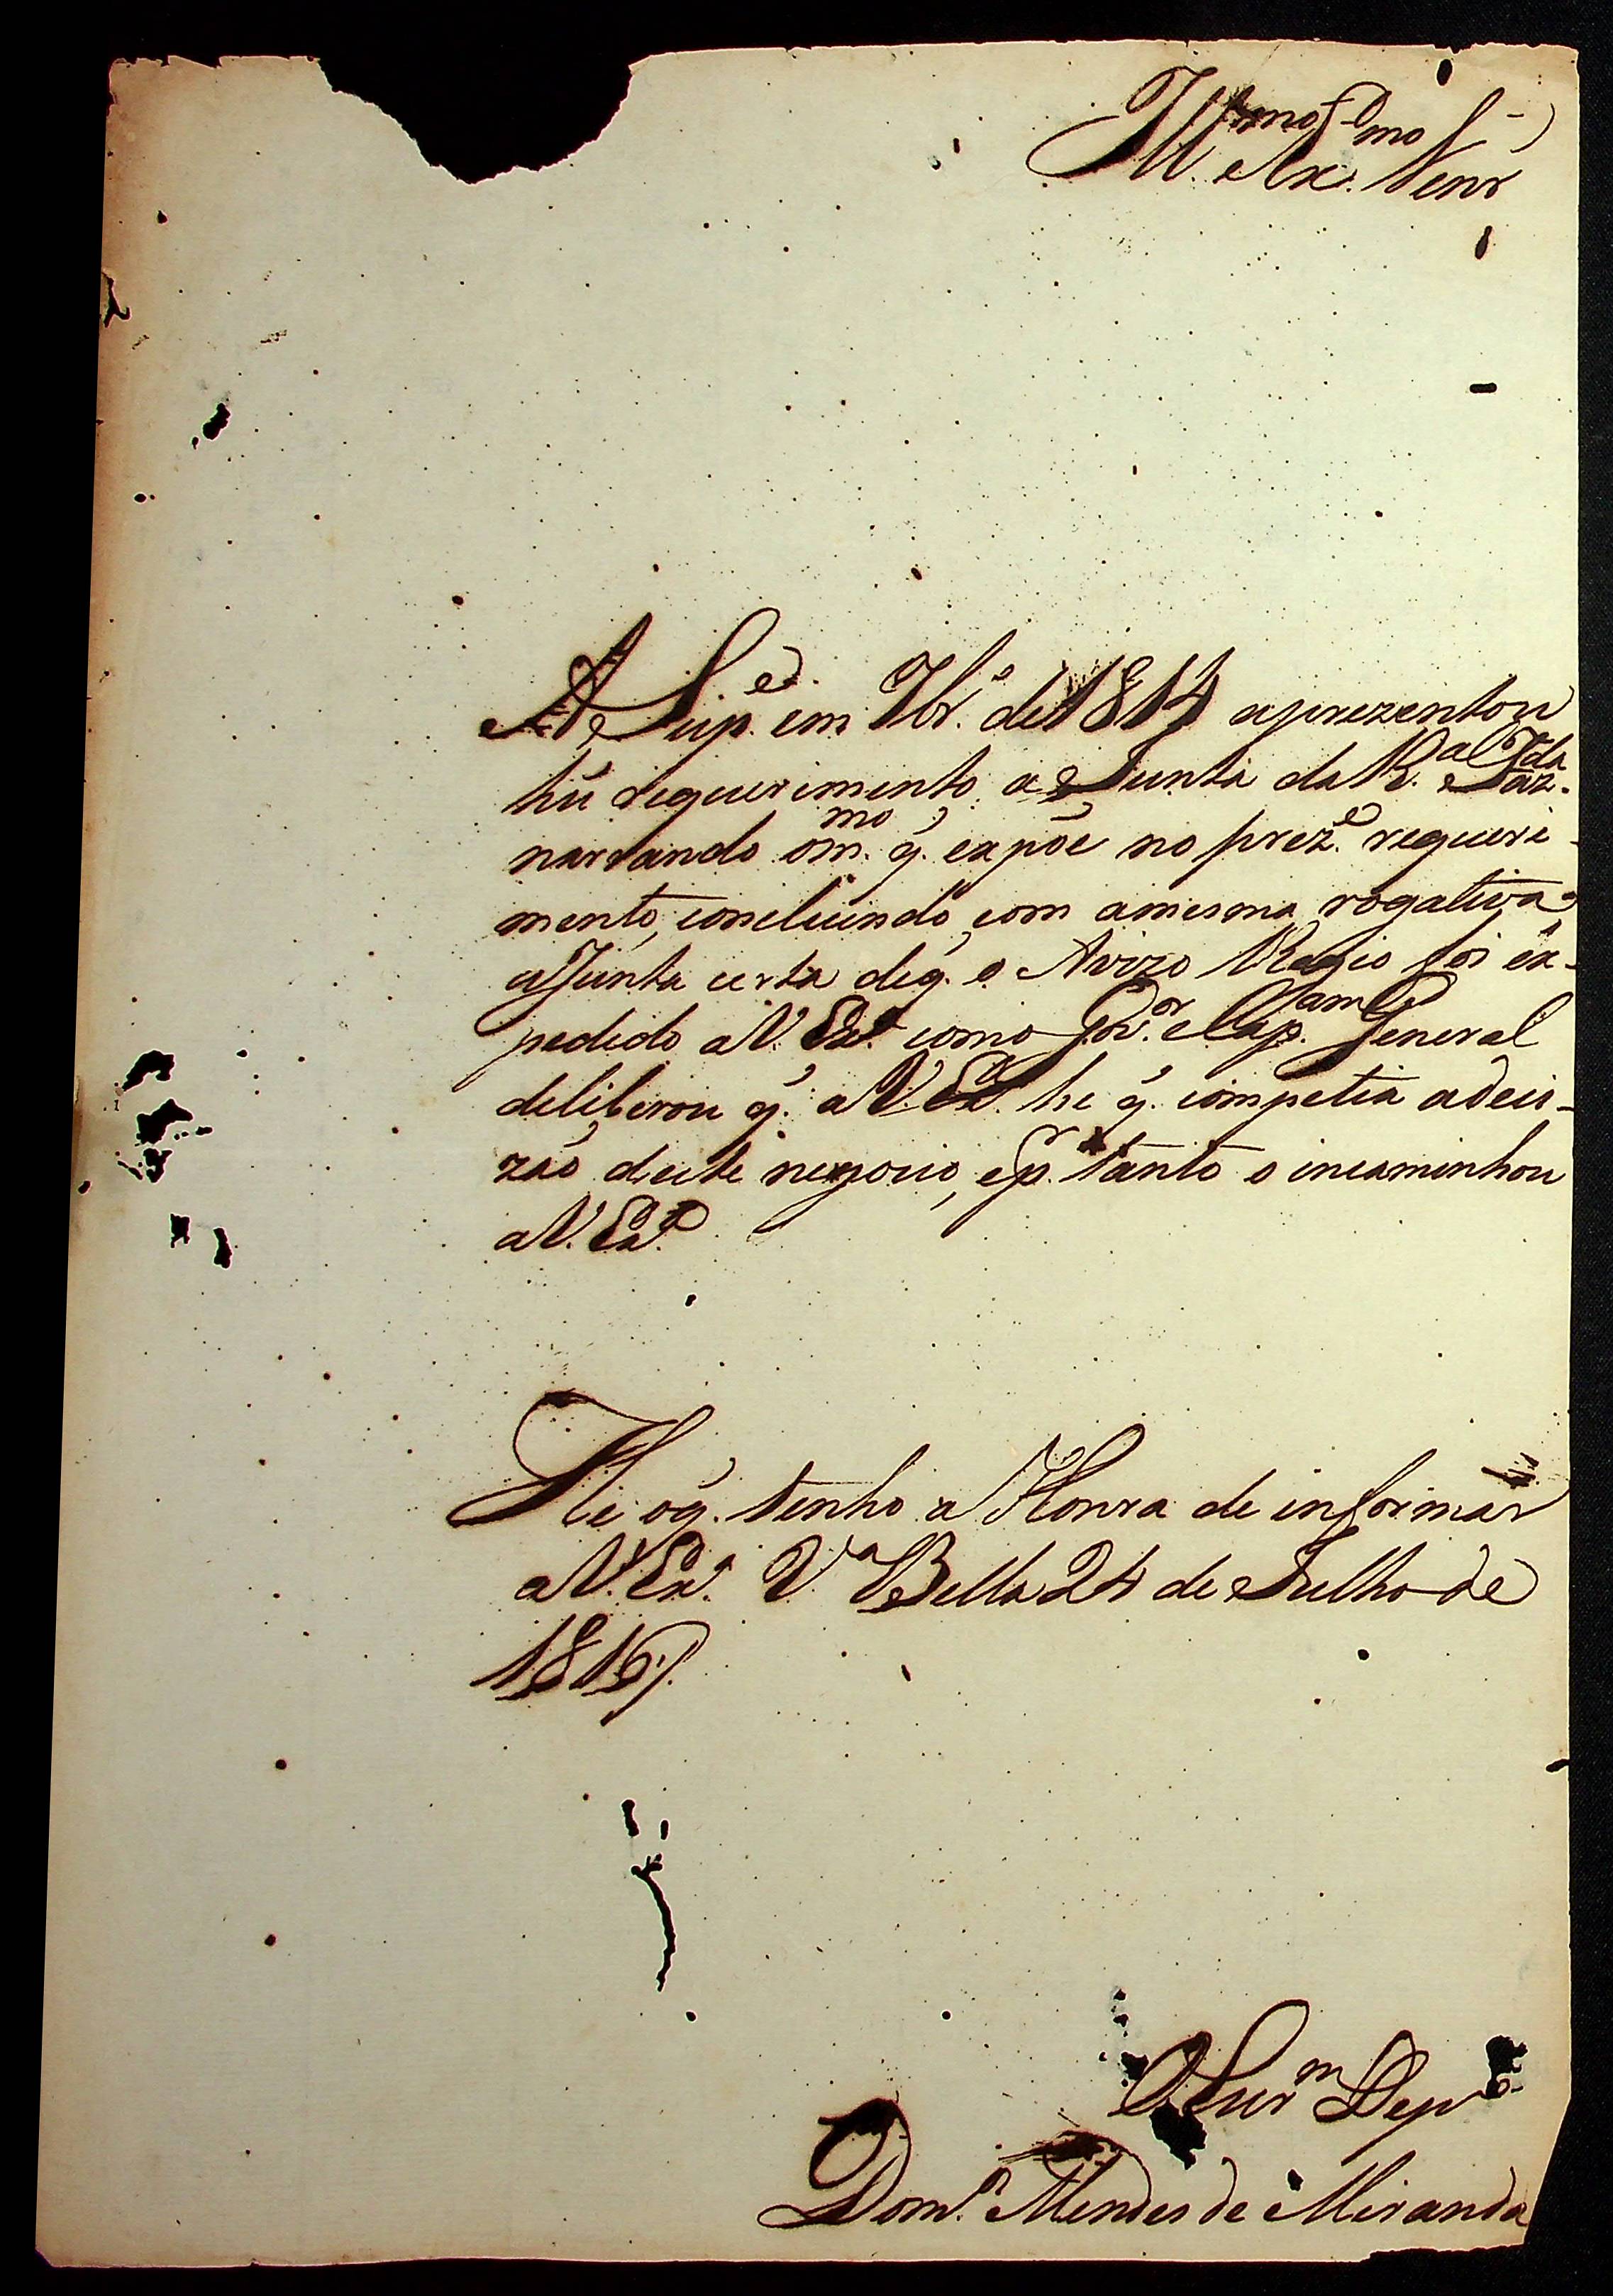 Ill.mo Ex.mo Senr
A Sup.e em 7br.o de 1814 aprezentou
hũ requerimento a Junta da R.al Faz.da
narrando om.mo q̃ expõe no prez.e requeri-
mento, concluindo com amesma rogativa
aJunta certa deq. o Avizo Regio foi ex-
pedido aV. Ex.a como Gov.or eCap.am General
deliberou q̃ aV. Ex.a he q̃ competia adeci-
zaõ deste negocio, ep.r tanto o incaminhou
aV. Ex.a
He oq̃ tenho a Honra de informar
aV. Ex.a V.a Bella 24 de Julho de
1816
Dep
Dom.s Mendes de Miranda